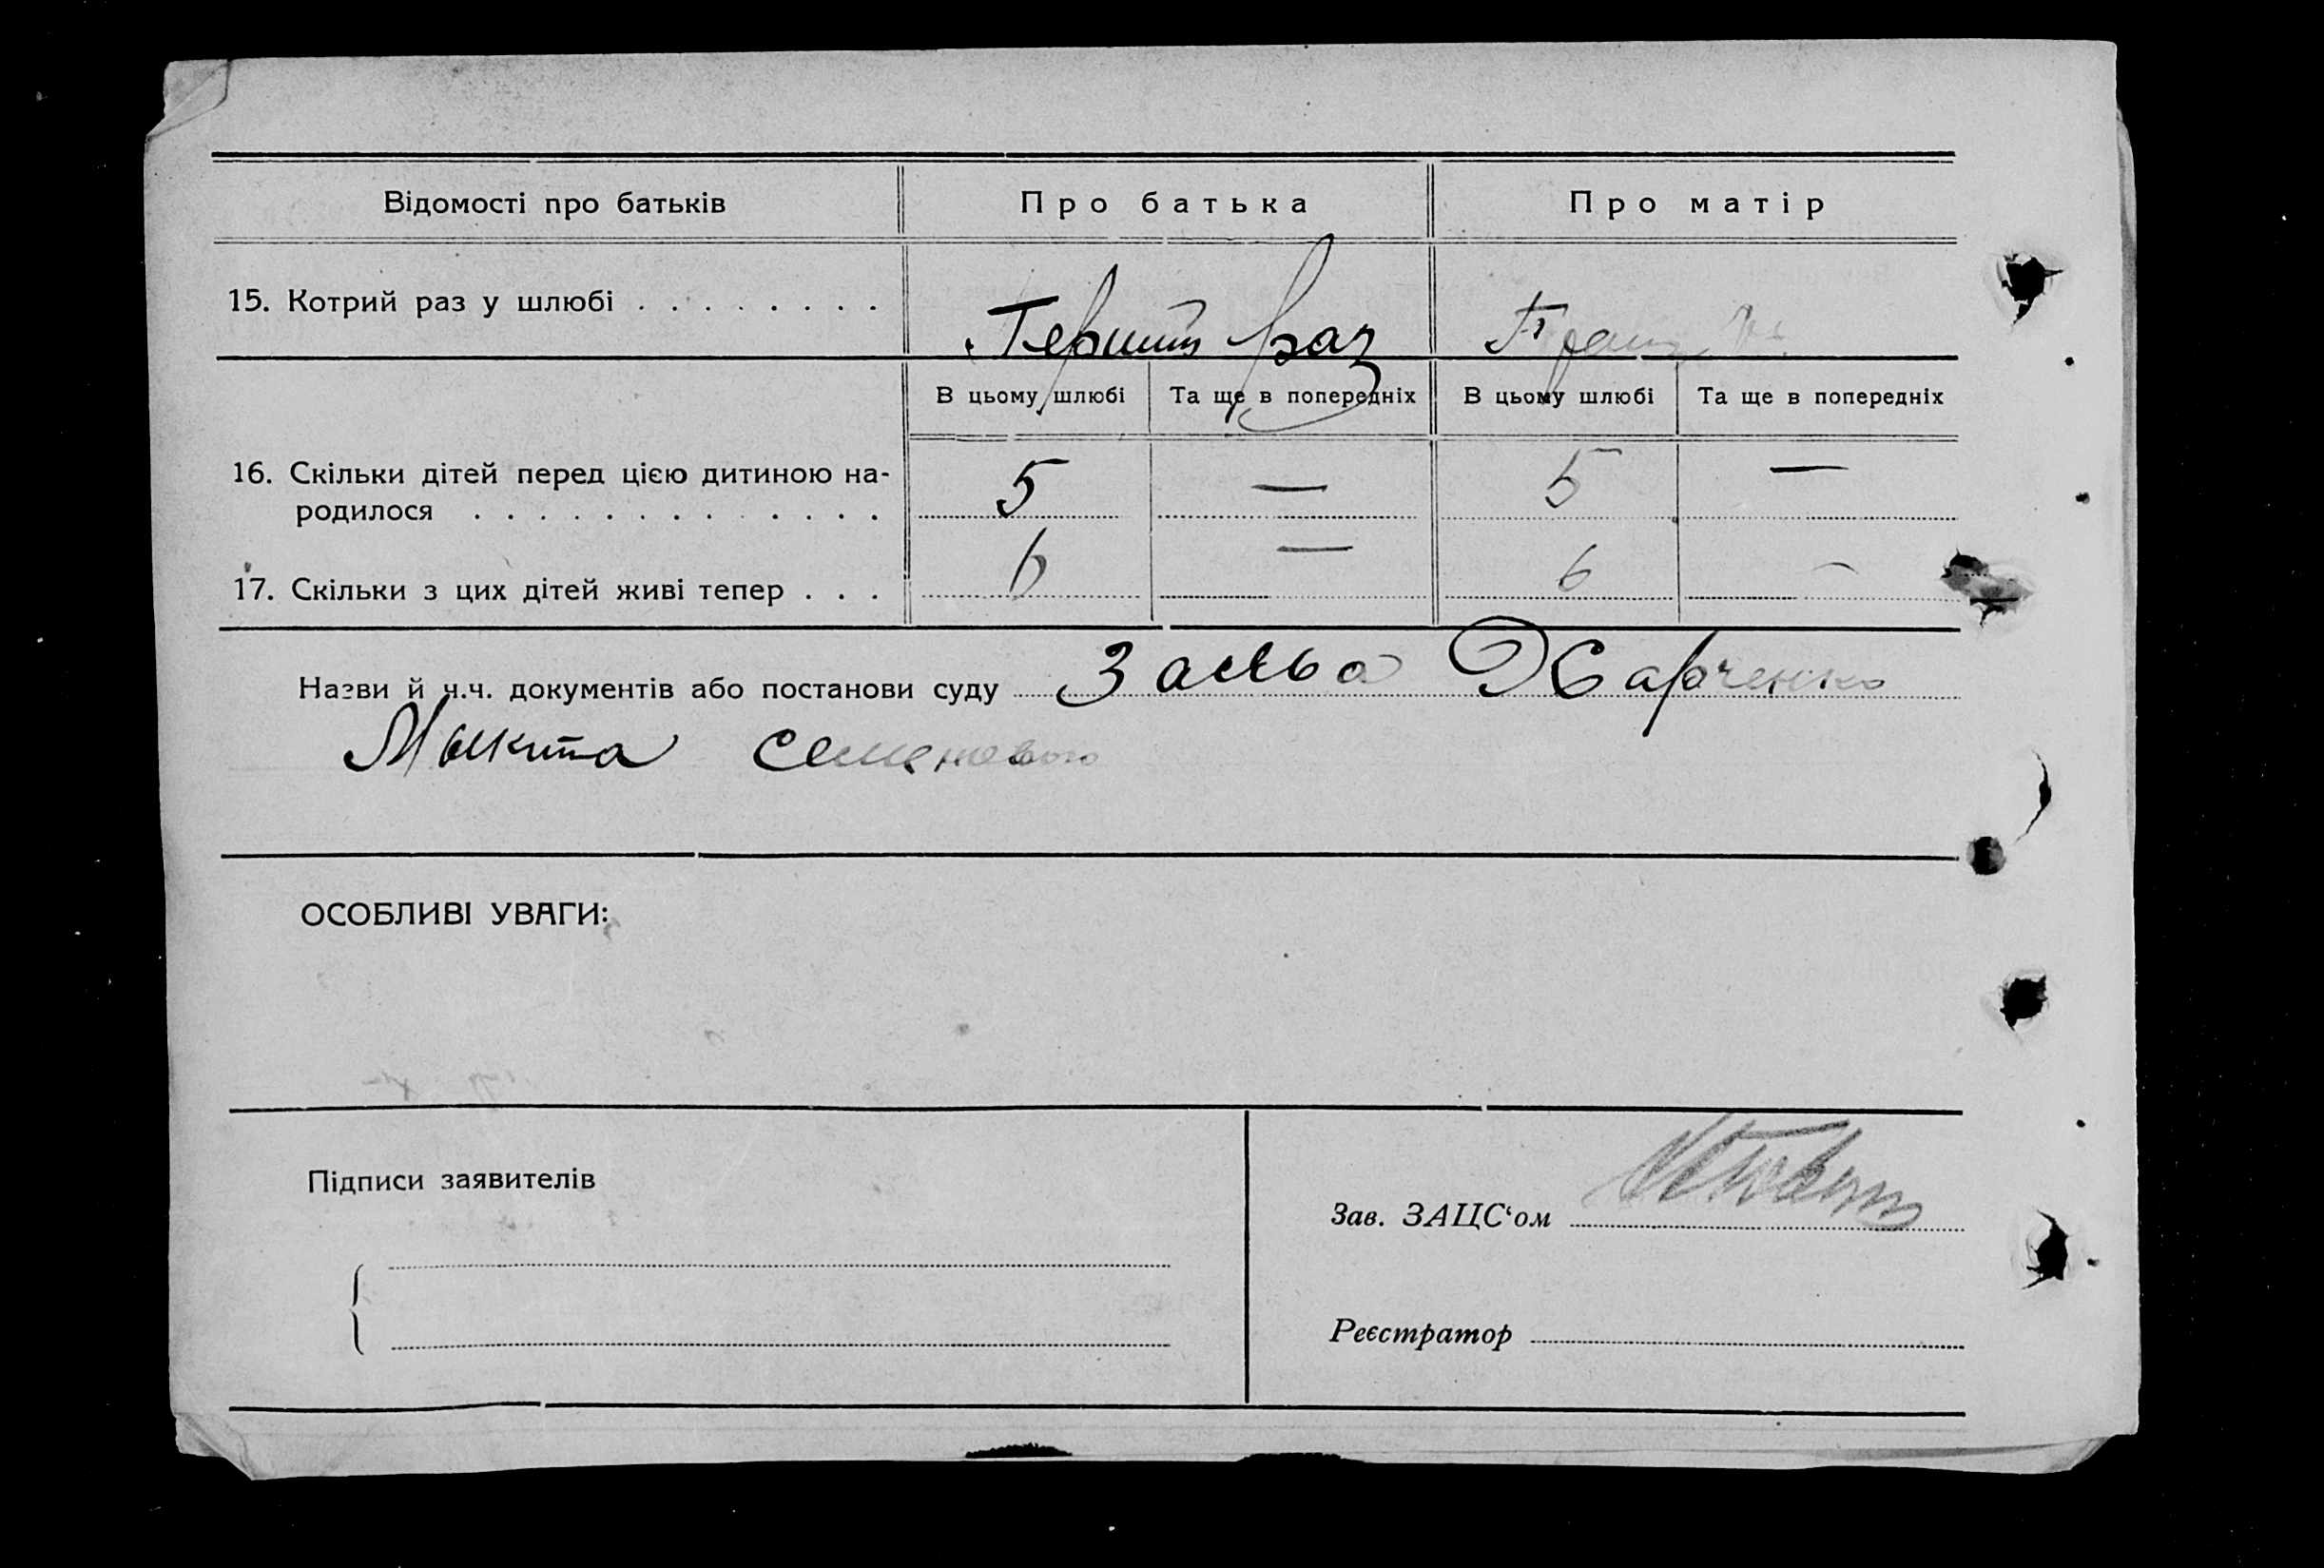 Відомості про батьків Про батька Про матір
15. Котрий раз у шлюбі . . . . . . . . Первий раз
В цьому шлюбі Та ще в попередніх В цьому шлюбі Та ще в попередніх
16. Скільки дітей перед цією дитиною на-
родилося . . . . . . . . . . . . . 5 — 5 —
17. Скільки з цих дітей живі тепер . . . 6 — 6 —
Назви й ч.ч. документів або постанови суду Заява Харченко
Микита Семенового
ОСОБЛИВІ УВАГИ:
Підписи заявителів
Зав. ЗАЦС‘ом
Реєстратор